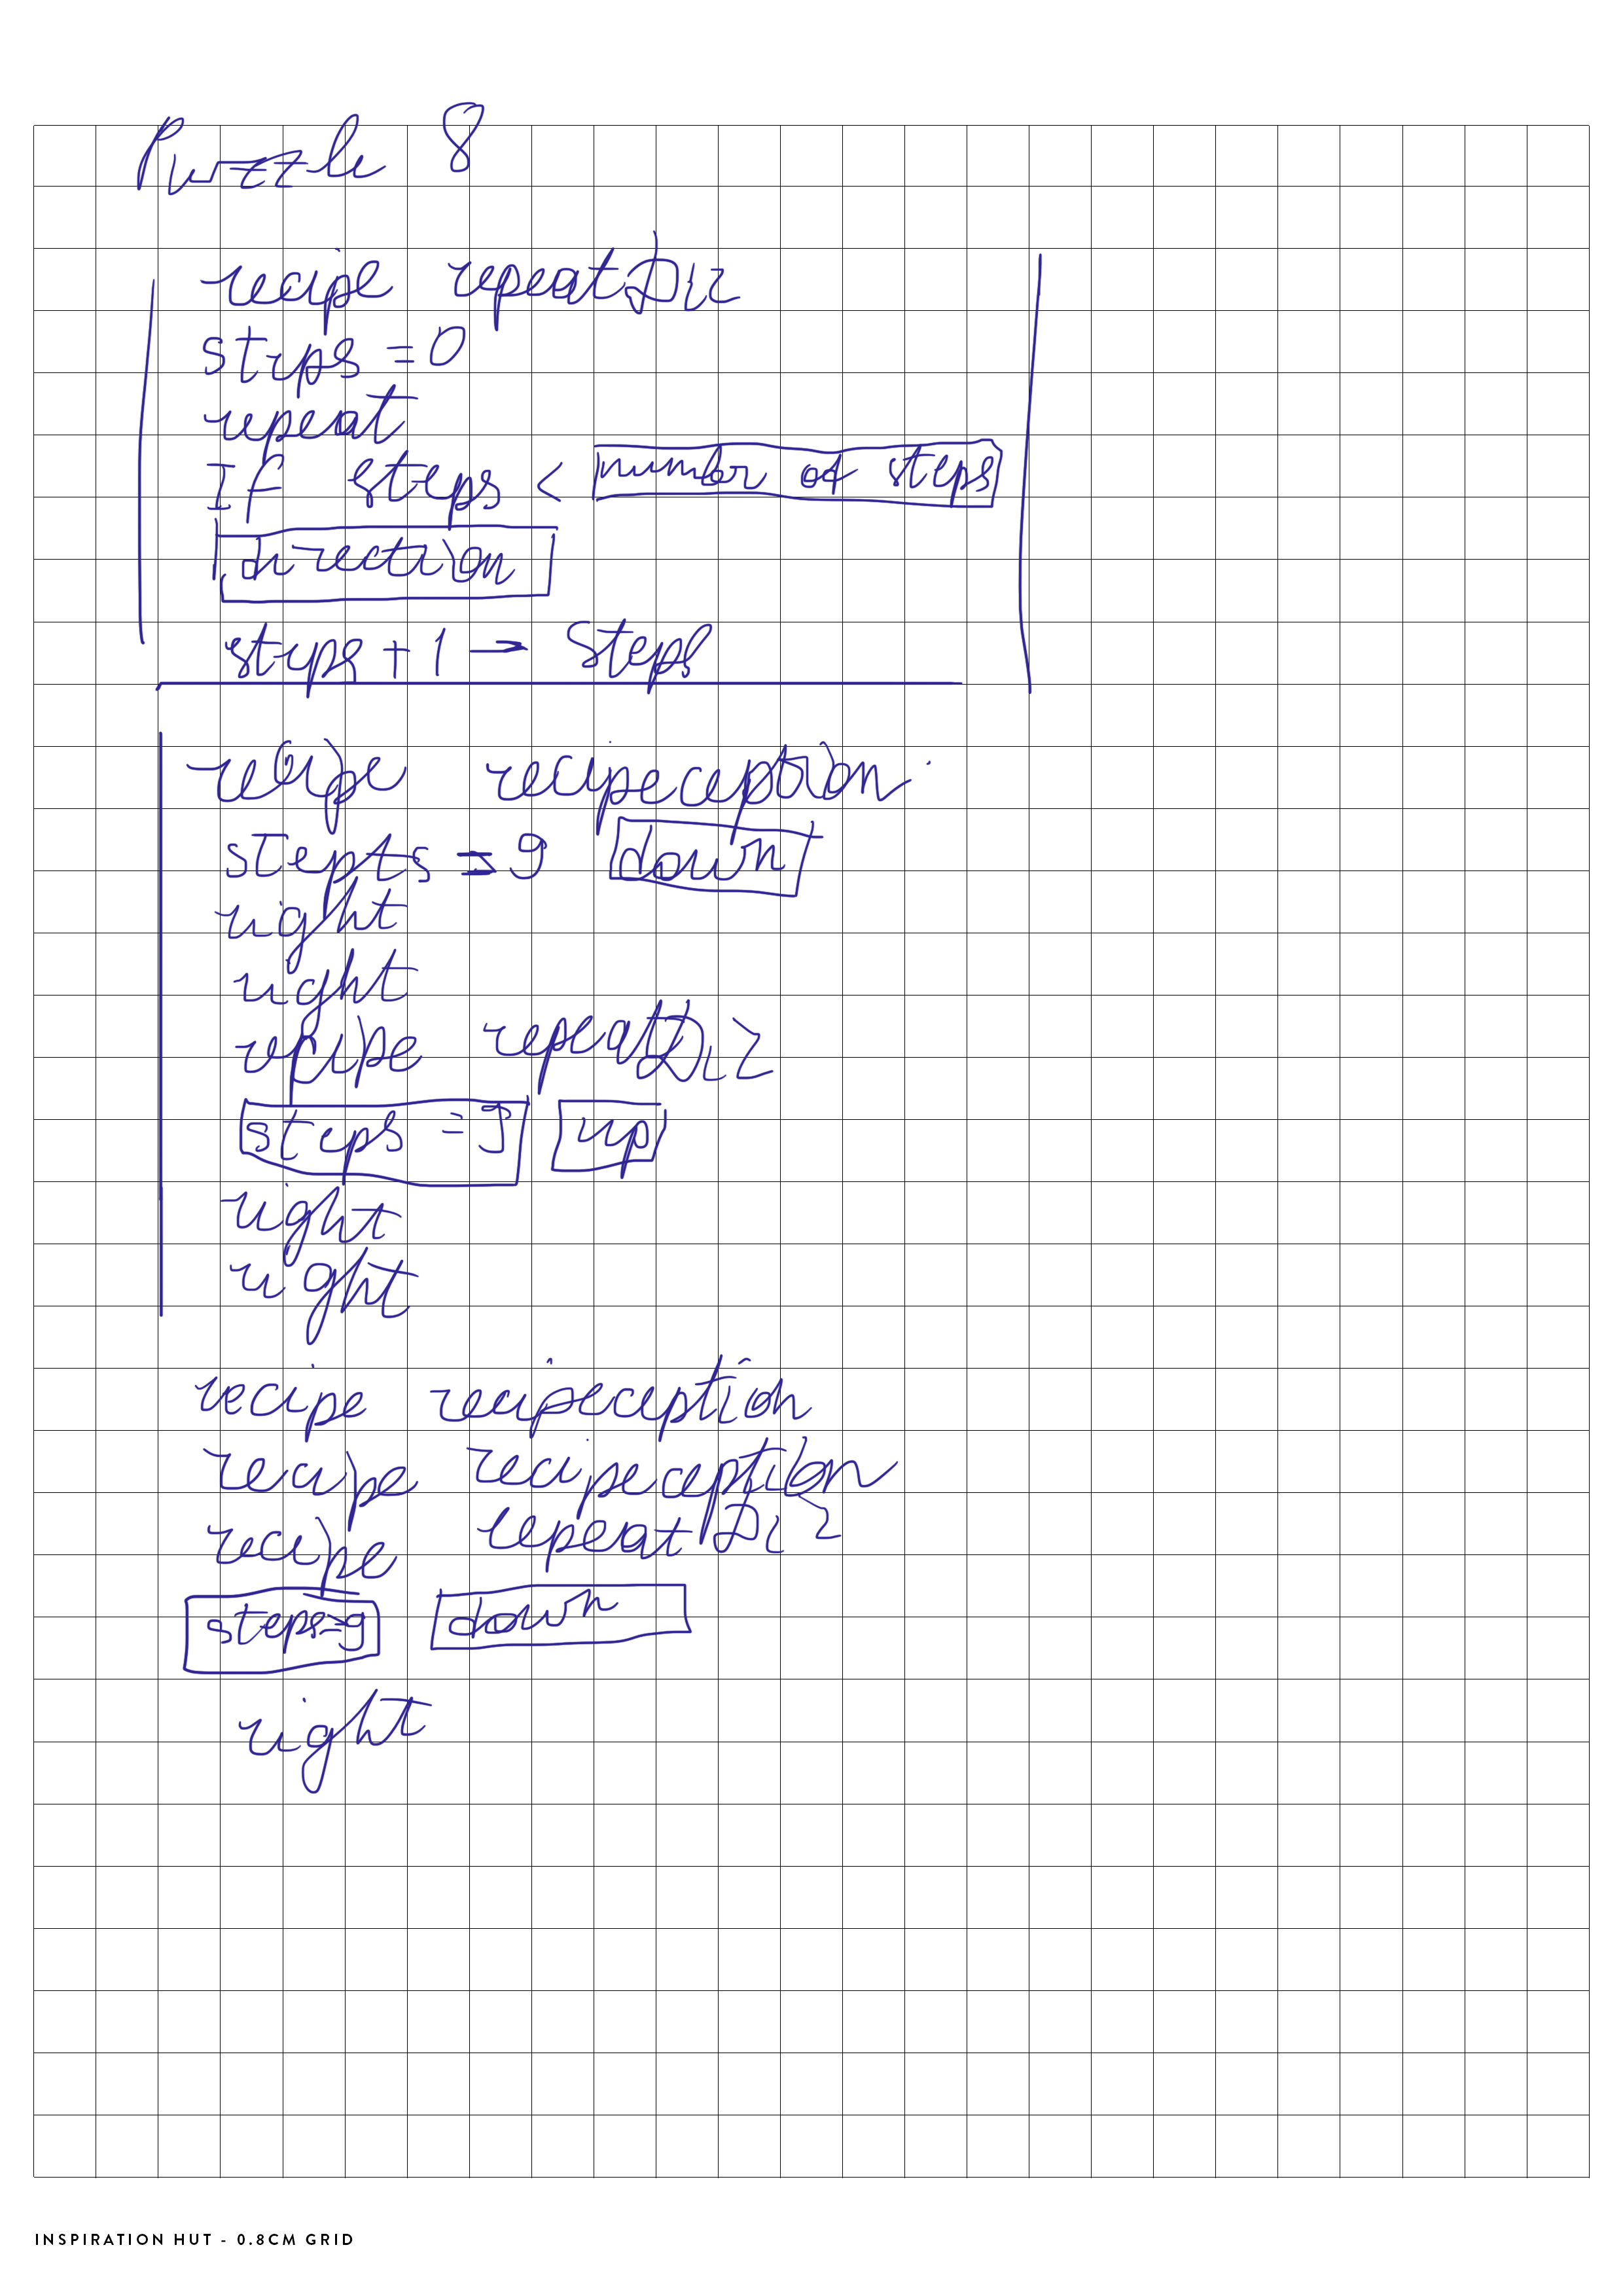 Puzzle 8
recipe repeatDir
steps = 0
repeat
If steps < number of steps
direction
steps + 1 → steps
recipe recipeception
stepts = 9 down
right
right
recipe repeatDir
steps = 9 up
right
right
recipe recipeception
recipe recipeception
recipe repeatDir
steps = 9 down
right
INSPIRATION HUT - 0.8CM GRID